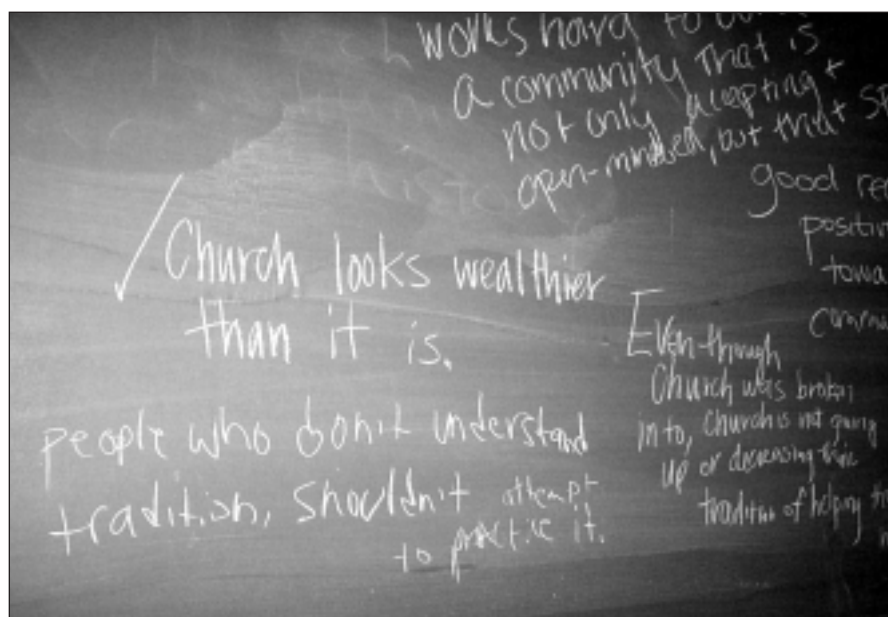 works hard to
a community that is
not only accepting +
open-minded, but that
good
Church looks wealthier
than it is.
people who don't understand
tradition, shouldn't attempt
to practice it.
Even through
Church was broken
into, Church is not giving
up or decreasing their
tradition of helping